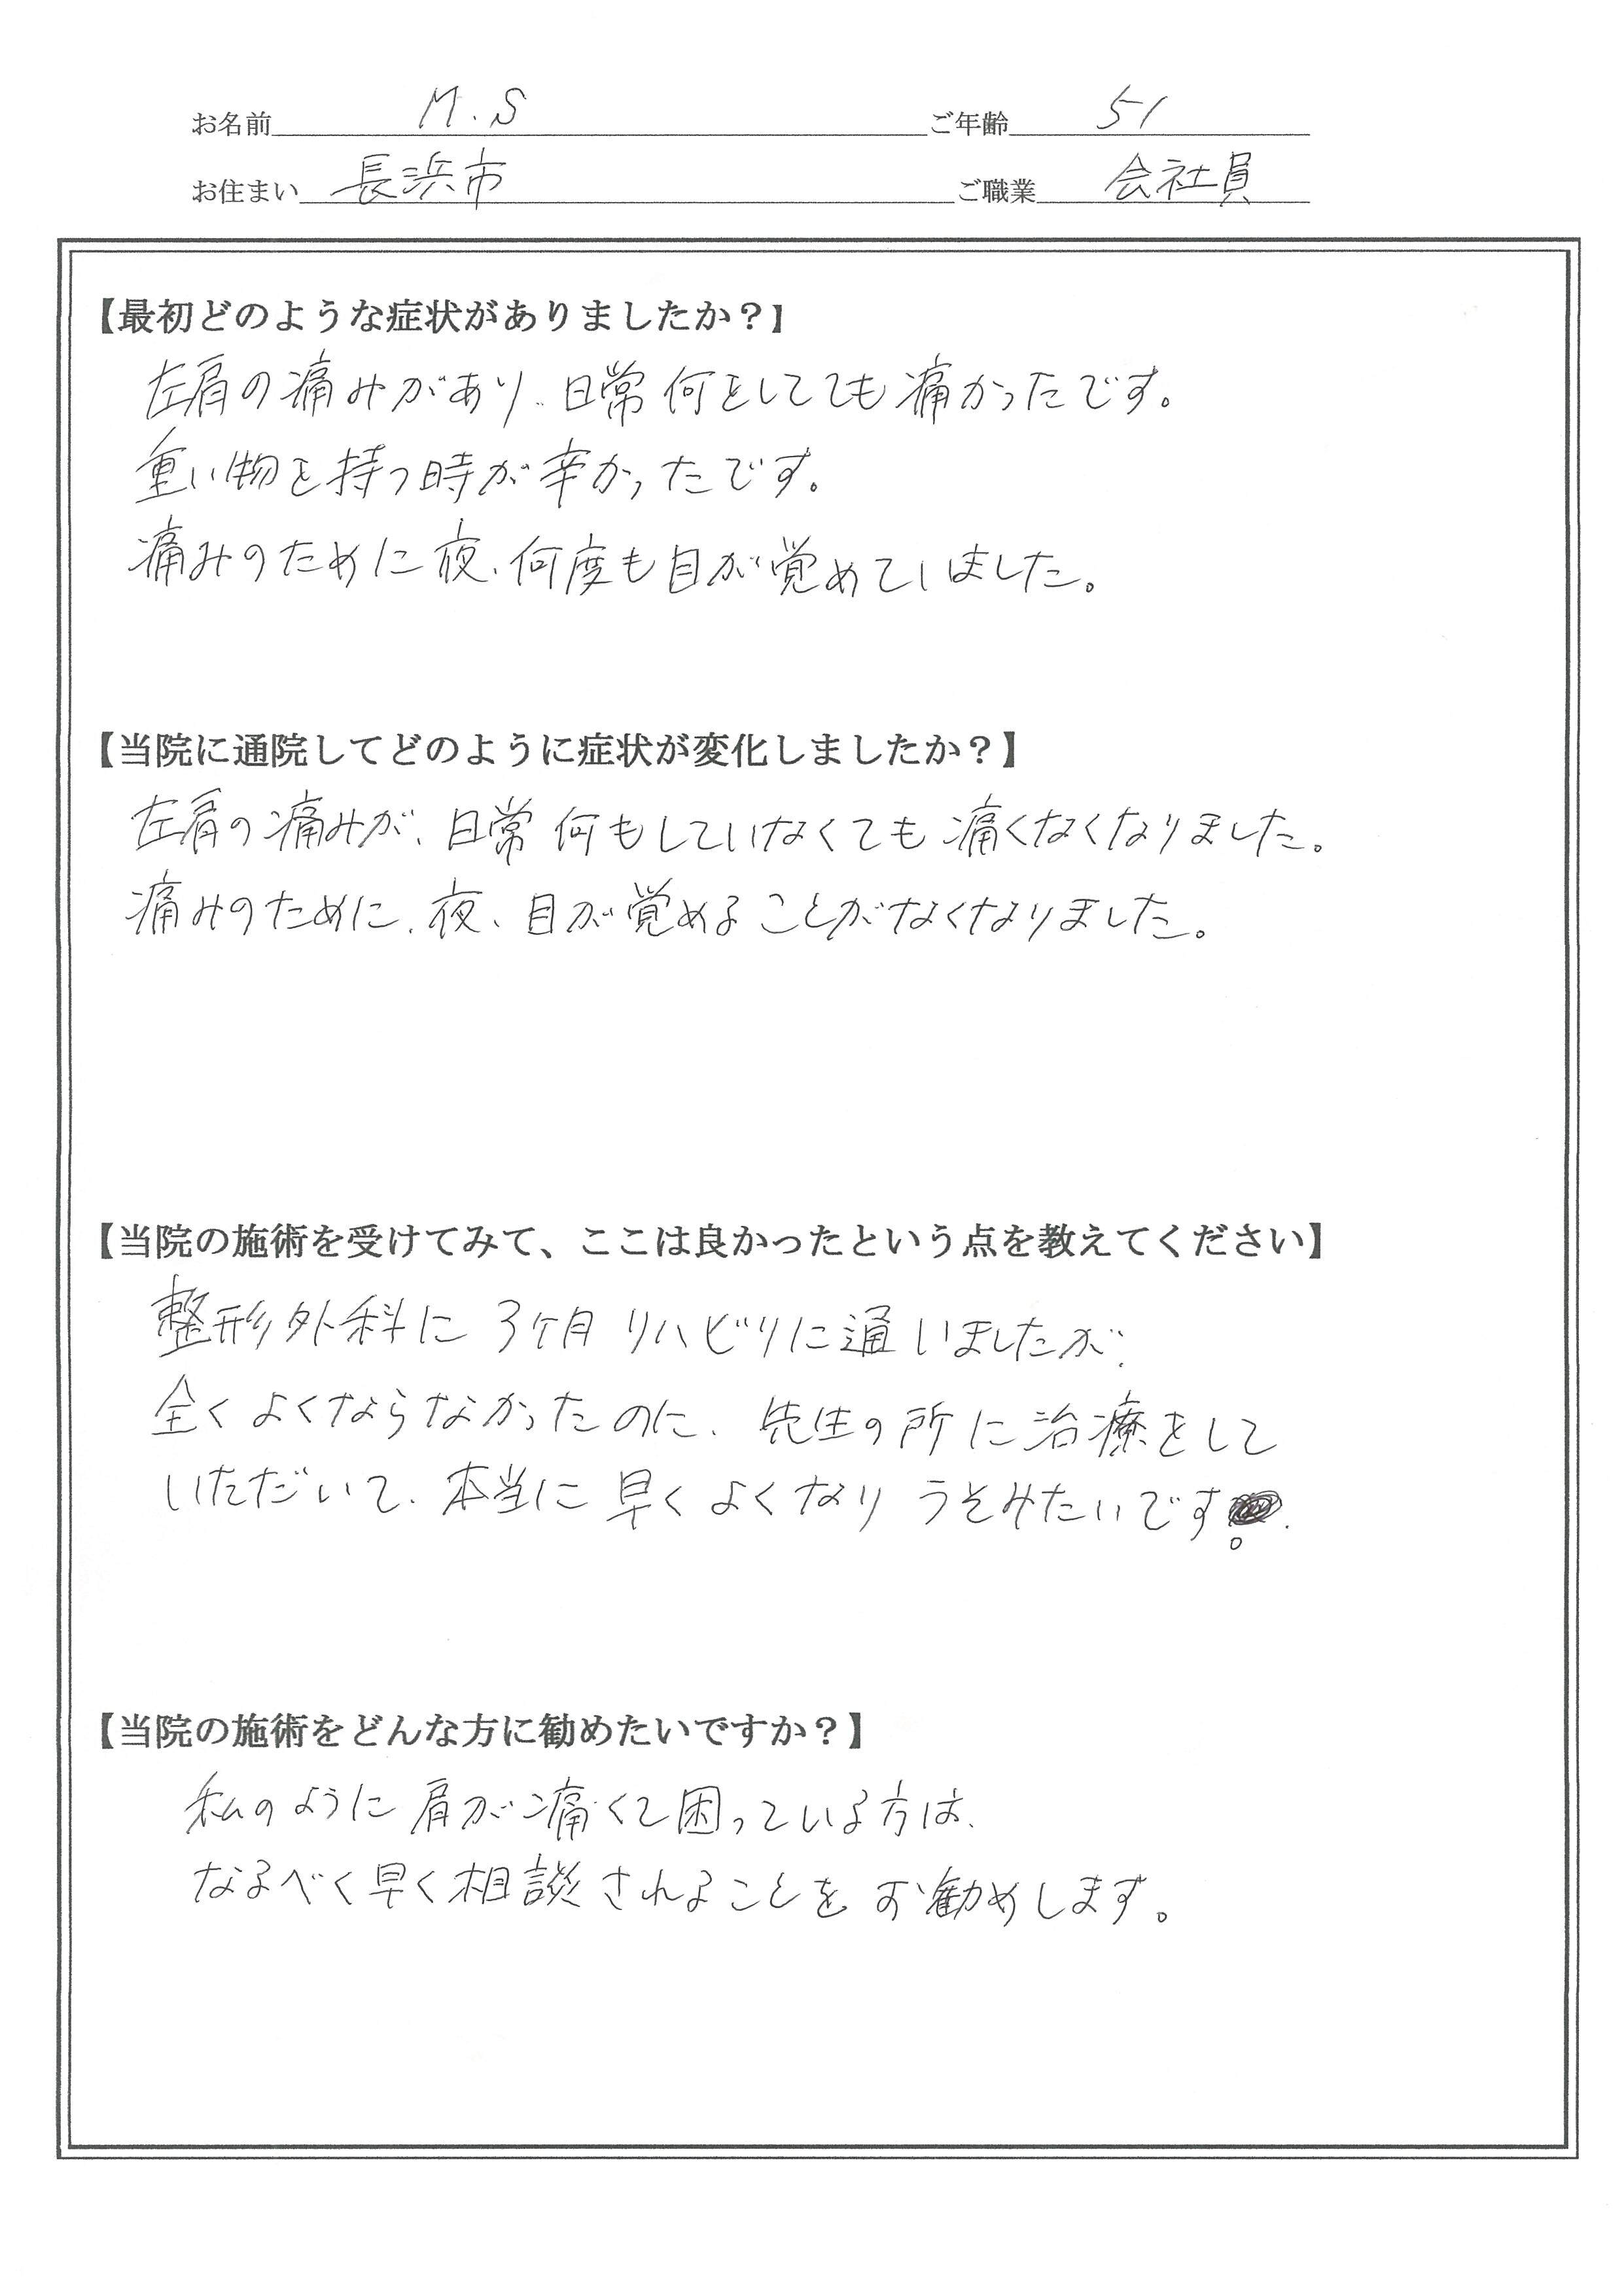 お名前 M.S ご年齢 51
お住まい 長浜市 ご職業 会社員
【最初どのような症状がありましたか？】
左肩の痛みがあり、日常何をしてても痛かったです。
重い物を持つ時が辛かったです。
痛みのために夜、何度も目が覚めていました。
【当院に通院してどのように症状が変化しましたか？】
左肩の痛みが、日常何もしていなくても痛くなくなりました。
痛みのために、夜、目が覚めることがなくなりました。
【当院の施術を受けてみて、ここは良かったという点を教えてください】
整形外科に3ケ月リハビリに通いましたが、
全くよくならなかったのに、先生の所に治療をして
いただいて、本当に早くよくなりうそみたいです。
【当院の施術をどんな方に勧めたいですか？】
私のように肩が痛くて困っている方は、
なるべく早く相談されることをお勧めします。